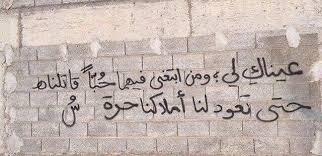 عيناك لي ؛ ومن ابتغى فيهما حُبّاً قاتلناه
حتى تعود لنا أملاكنا حرة